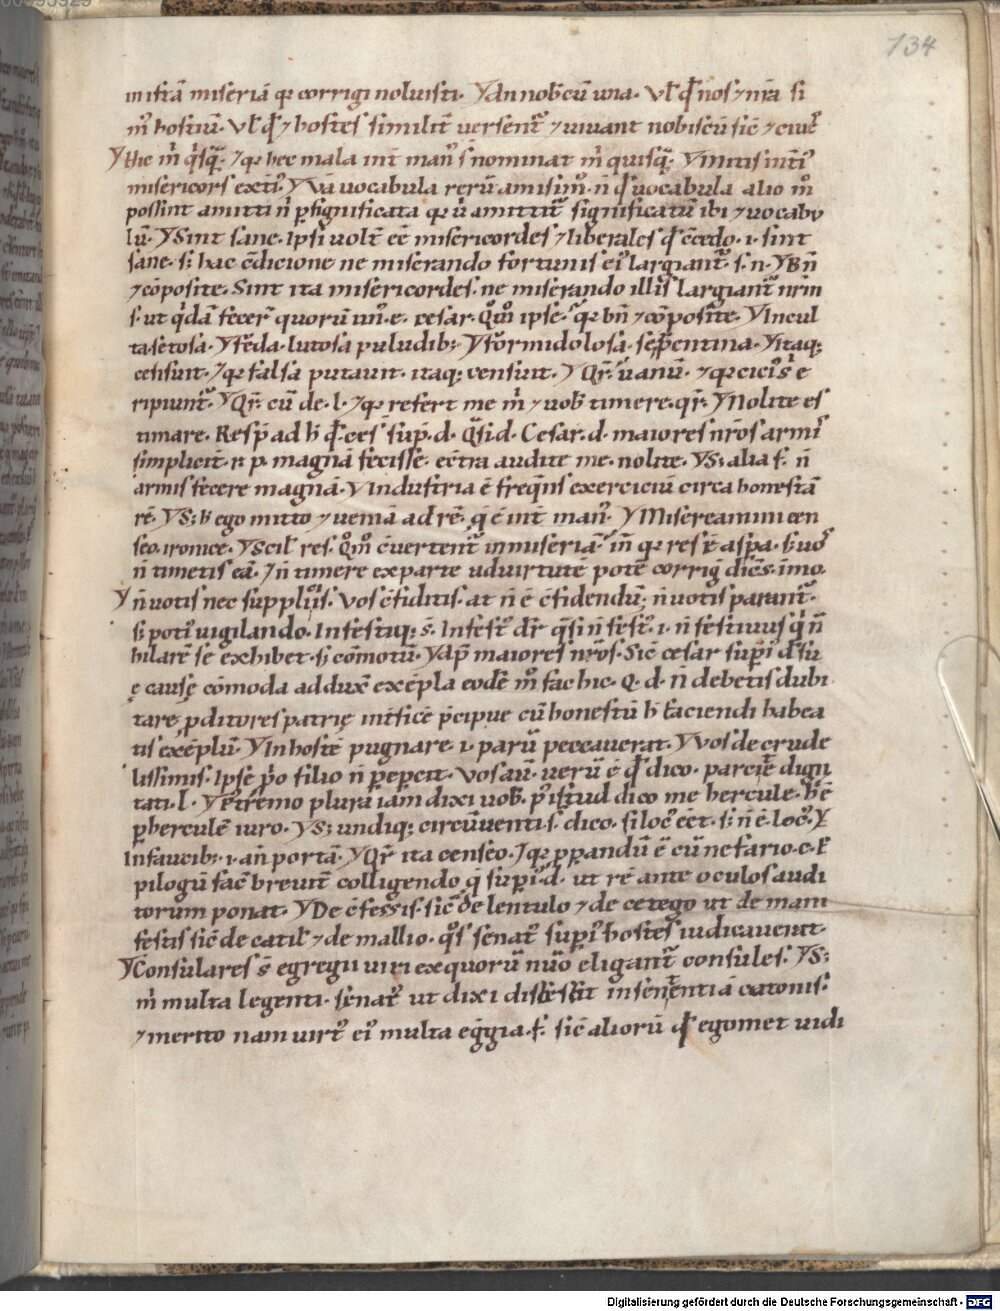 134
in istā miseriā qr corrigi noluisti. Ƴ An nobᷤ cū una. Vl' qđ nos ⁊ nr̄a si
m̄ hostiū. Vl' qđ ⁊ hostes similit̄ uersent̄ ⁊ uiuant nobiscū sic̄
mala nominat m̄ quisq̄. Ƴ
misericors Ƴ uocabula rerū amisim᷒. n̄ qđ uocabula alio m̄
possint amitti n̄ significata qr ū amittit̄ significatū ibi ⁊ uocabu
lū. Ƴ Sint sane. Ipsi uolt̄ eē misericordes ⁊ liberales qđ c̄cedo. i. sint
sane. s; hac c̄dicione ne miserando fortunis ei᷒ largiant̄. s. n. Ƴ Bn̄
⁊ cōposite. Sint ita misericordes. ne miserando illis largiant̄ nr̄m
s. ut q̇dā fecer̄ quorū un᷒. e. cesar. Qm̄ ipse. qr bn̄ ⁊ cōposite. Ƴ Incul
ta. setosa. Ƴ feda. lutosa paludib; Ƴ formidolosa. serpentina. Ƴ Itaq;
censuit. ⁊ qr falsa putauit. itaq; censuit. Ƴ Qr̄. uanū. ⁊ qr
ripiunt̄. Ƴ Qr̄. cū de. l. ⁊ qr refert me m̄ ⁊ uob timere. qr̄. Ƴ Nolite es
timare. Resp̄ ad h̄ qđ ces̄ sup̄. d. Qsi. d. Cesar. d. maiores nr̄os armi᷒
simplicit̄. r p. magnā fecisse. ec̄tra audite me. nolite. Ƴ S; alia f. n̄
armis fecere magnā. Ƴ Industria ē freq̄ns exerciciū circa honestā
rē. Ƴ S; h̄ ego mitto ⁊ ueniā ad rē. Ƴ Misereamini cen
seo. ironice. Ƴ Scil' res. Qm̄ c̄uertent̄ in miseriā. qr res ē asp̄a. s; uos
n̄ timetis eā. ⁊ n̄ timere ex parte ad uirtutē potē corriḡ dicēs. imo.
Ƴ n̄ uotis nec suppliīs. Vos c̄fiditis. at n̄ ē c̄fidendū; n̄ uotis parant̄.
s; poti᷒ uigilando. Infestiq; s̄. Infest᷒ dr̄ qsi n̄ fest᷒. i. n̄ festiuus q̇ n̄
hilarē se exhibet. s; cōmotū. Ƴ Ap̄ maiores nr̄os. Sic̄ cesar superi᷒ d̄ su
ę causę cōmoda adduxit exēpla eodē m̄ fac̄ hic. Q. d. n̄ debetis dubi
tare, p̱ditores patrię int̄ficē p̄cipue cū honestū h̄ faciendi habea
tis exēplū. Ƴ In hostē pugnare. i. parū peccauerat. Ƴ Vos de crude
lissimis. Ipse p̱o filio n̄ pep̄cit. Vos aū. uerū ē qđ dico. parcite digni
tati. l. Ƴ Postremo plura iam dixi uob. p̱ istud dico me hercule.
p̱ herculē iuro. Ƴ S; undiq; circūuenti s. dico. si loc᷒ eēt. s; n̄ ē. loc᷒. Ƴ
In faucib; i. an̄ portā. Ƴ Qr̄ ita censeo. ⁊ qr parandū ē cū nefario. c. E
pilogū fac̄ breuit̄ colligendo q̇ superi᷒. d. ut rē ante oculos audi
torum ponat. Ƴ De c̄fessis. sic̄ de lentulo ⁊ de cetego ut de mani
festis sic̄ de catil' ⁊ de mallio. qōs senat᷒ superi᷒ hostes iudicauerat.
Ƴ Consulares s̄ egregii uiri ex quorū nūo eligant̄ consules. Ƴ S;
m̄ multa legenti. senat᷒ ut dixi discessit in sententiā catonis.
⁊ merito nam uirt᷒ ei᷒ multa egregia. f. sic̄ aliorū qđ egomet uidi
Digitalisierung gefördert durch die Deutsche Forschungsgemeinschaft - DFG